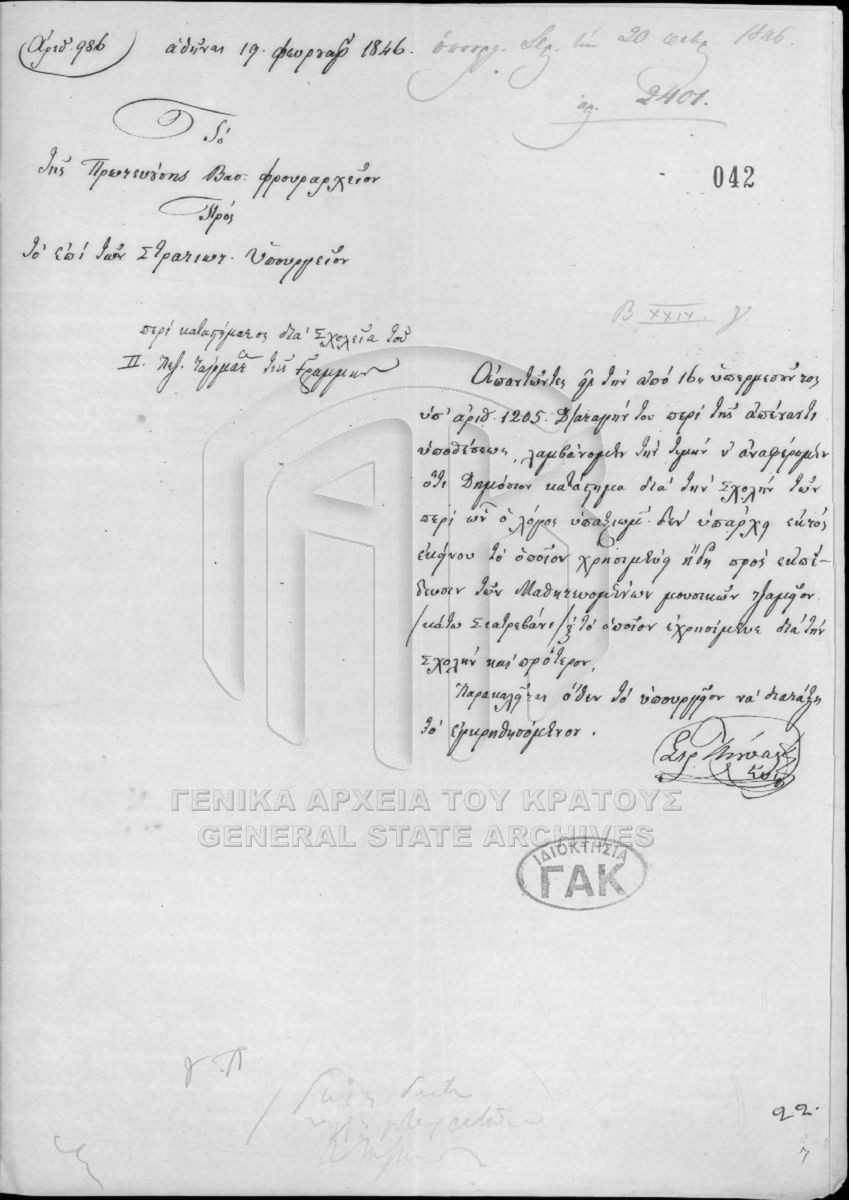 Αριθ. 986
αθήναι 19. φευρουαρ 1846.
υπουργ. Στρ. την 20 φεβρ 1846.
αρ. 2401.
Τό
της Πρωτευούσης Βασ. φρουραρχείον
Πρός
τό επί των Στρατιωτ. Υπουργείον
042
Β XXIX. γ
περί καταστήματος διά Σχολεία του
ΙΙ. πεζ. τάγματ της Γραμμής
Απαντώντες εις την από 16η υπερμεσούντος
υπ' αριθ. 1205. Διαταγήν του περί της απέναντι
υποθέσεως, λαμβάνομεν την τιμήν ν' αναφέρομεν
ότι Δημόσιον κατάστημα διά την Σχολήν των
περί ων ο λόγος υπαξιωμ. δεν υπάρχει εκτός
εκείνου το οποίον χρησιμεύει ήδη προς εκπαί-
δευσιν των Μαθητευομένων μουσικών
/κάτω Σιατρεβάνι/ το οποίον εχρησίμευε διά την
Σχολήν και πρότερον.
Παρακαλείται όθεν τό υπουργείον να διατάξη
τό εγκριθησόμενον.
ΓΕΝΙΚΑ ΑΡΧΕΙΑ ΤΟΥ ΚΡΑΤΟΥΣ
GENERAL STATE ARCHIVES
ΙΔΙΟΚΤΗΣΙΑ
ΓΑΚ
22.
7